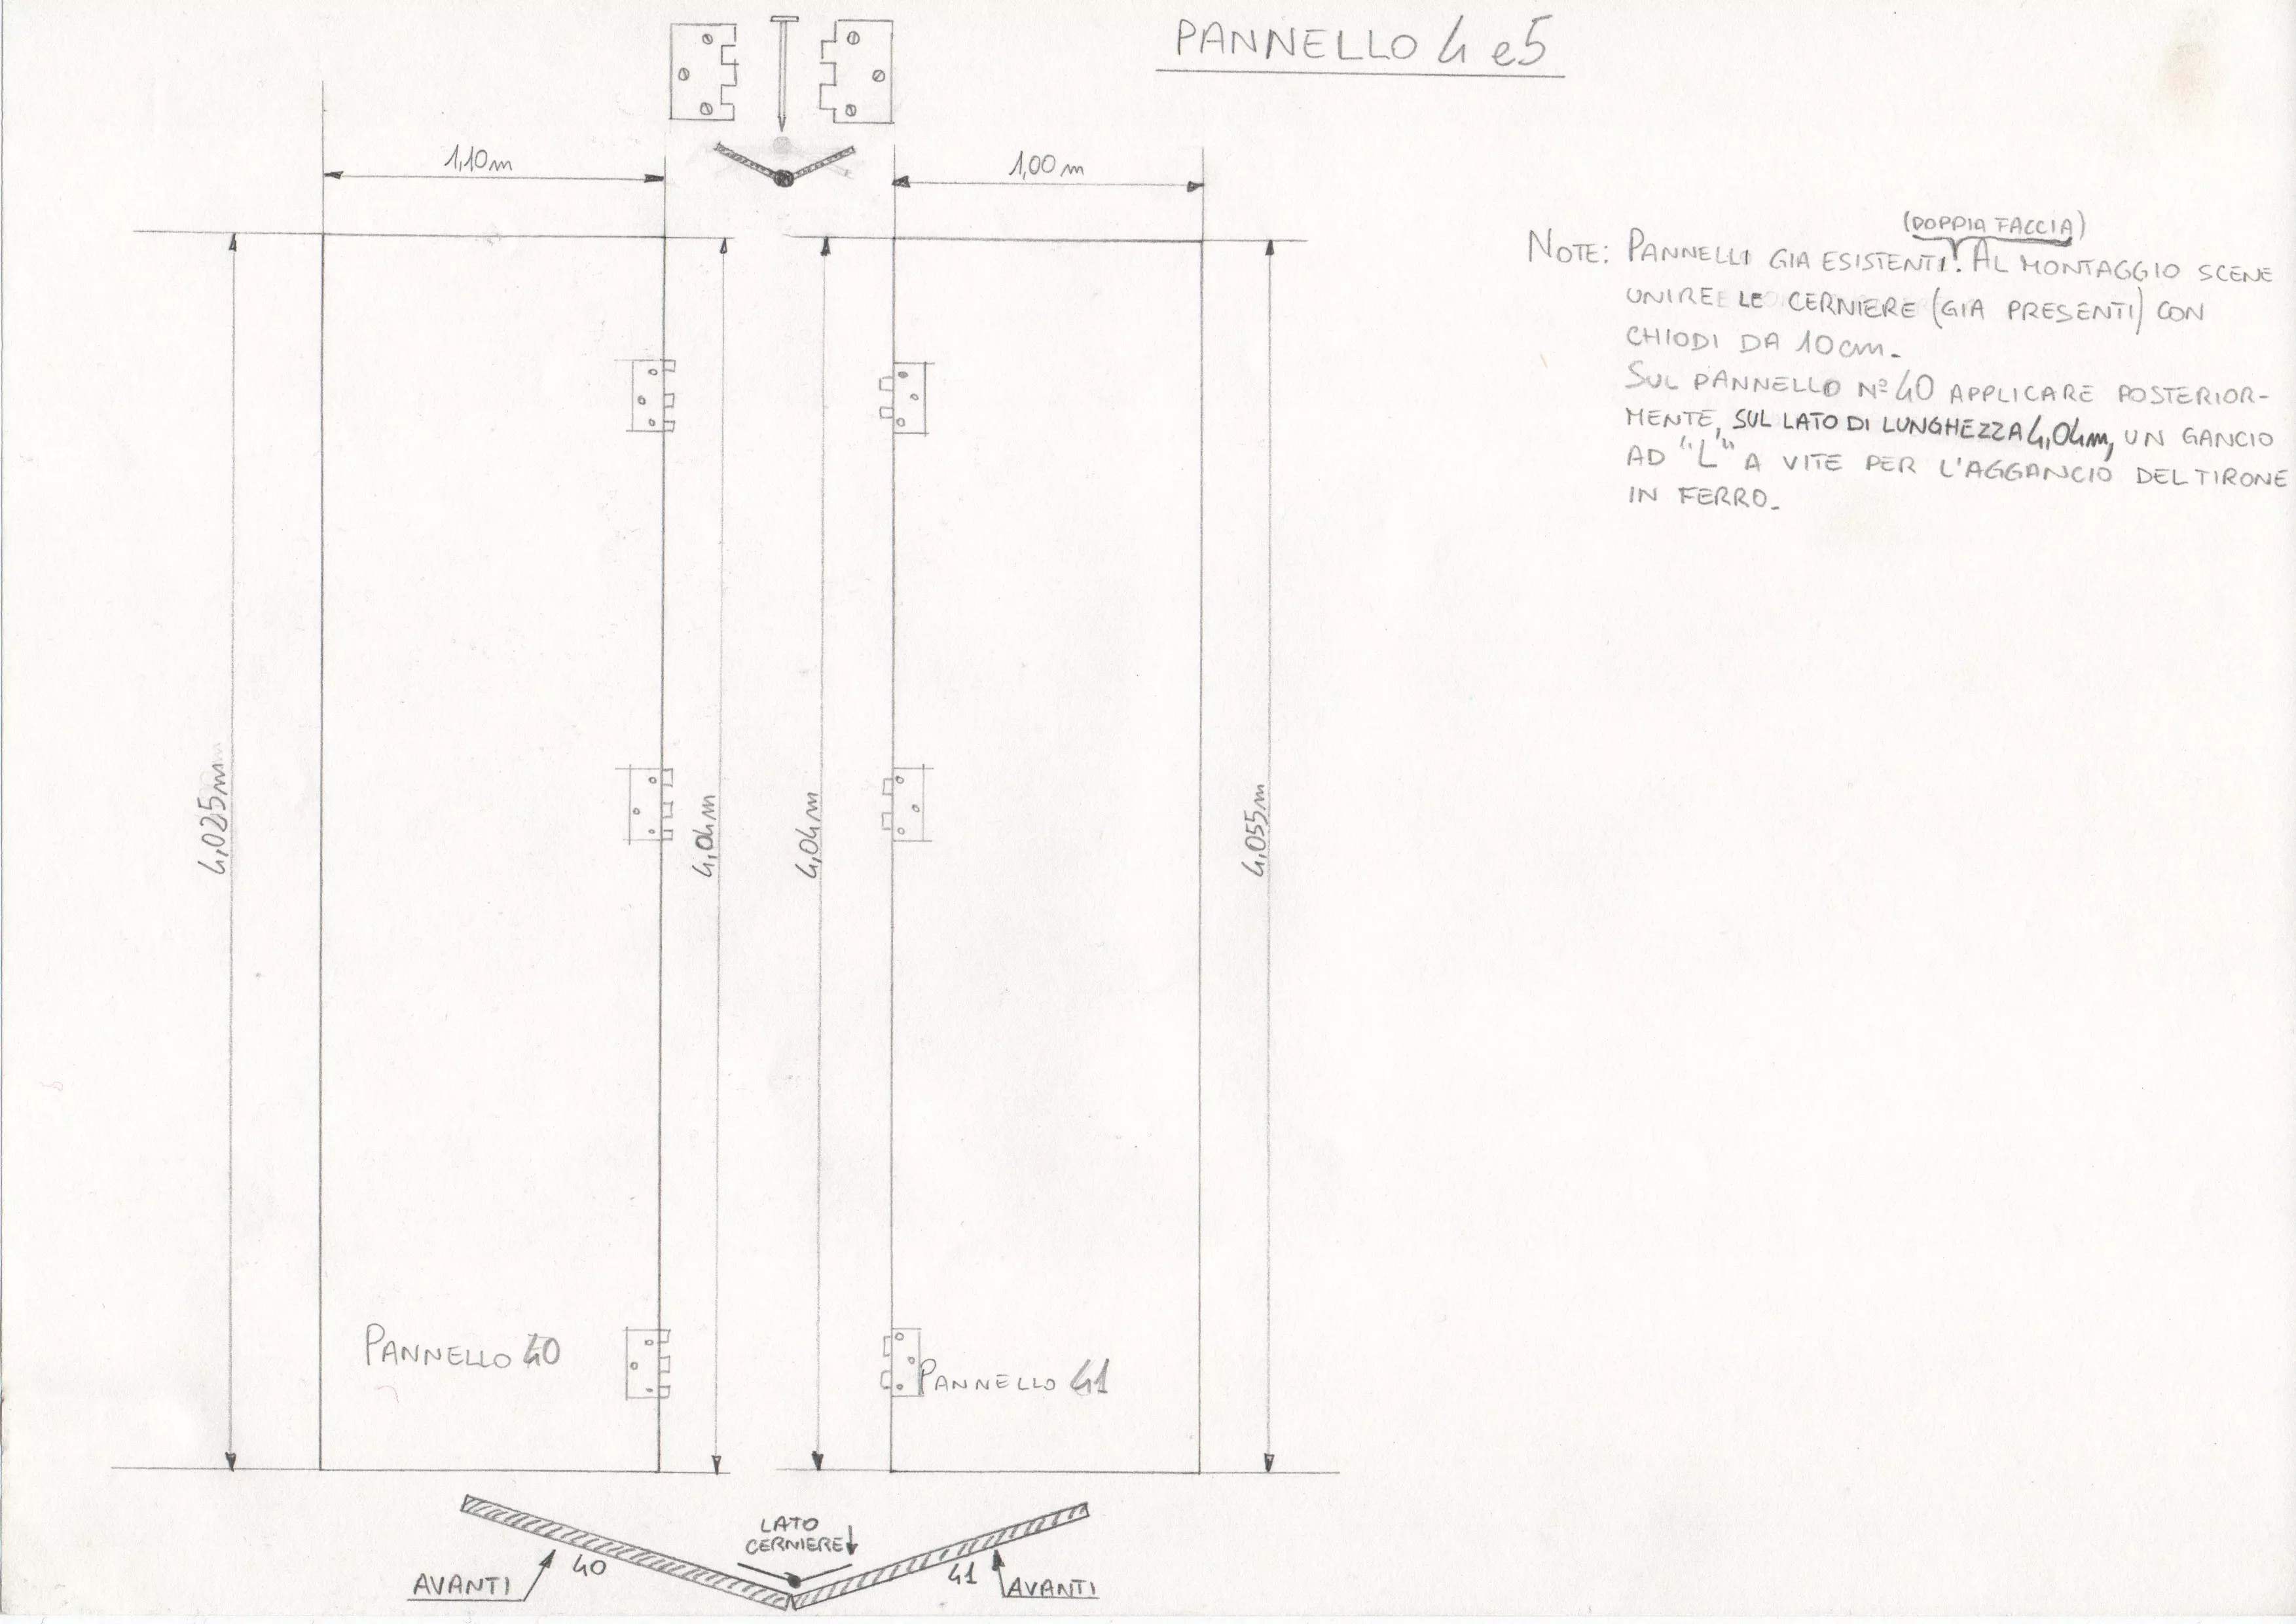 PANNELLO 4 e5
1,10m
1,00 m
(DOPPIA FACCIA)
NOTE: PANNELLI GIA ESISTENTI. AL MONTAGGIO SCENE
UNIRE LE CERNIERE (GIA PRESENTI) CON
CHIODI DA 10cm.
SUL PANNELLO Nº 40 APPLICARE POSTERIOR-
MENTE, SUL LATO DI LUNGHEZZA 4,04m, UN GANCIO
AD "L" A VITE PER L'AGGANCIO DEL TIRONE
IN FERRO.
4,025m
4,04m
4,04m
4,055m
PANNELLO 40
PANNELLO 41
LATO
CERNIERE
40
41
AVANTI
AVANTI